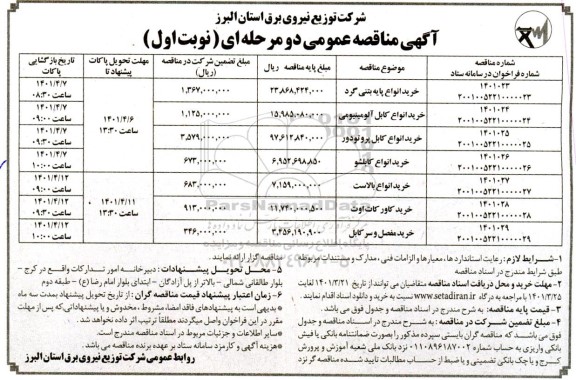 شرکت توزیع نیروی برق استان البرز
آگهی مناقصه عمومی دو مرحله ای (نوبت اول)
شماره مناقصه
شماره فراخوان در سامانه ستاد
موضوع مناقصه
مبلغ پایه مناقصه ریال
مبلغ تضمین شرکت در مناقصه (ریال)
مهلت تحویل پاکات پیشنهاد تا
تاریخ بازگشایی پاکات
۱۴۰۱-۲۳
۲۰۰۱۰۰۵۲۲۱۰۰۰۰۲۳
خرید انواع پایه بتنی گرد
۲۳,۸۶۸,۴۲۴,۰۰۰
۱,۳۶۷,۰۰۰,۰۰۰
۱۴۰۱/۴/۷
ساعت ۰۸:۳۰
۱۴۰۱-۲۴
۲۰۰۱۰۰۵۲۲۱۰۰۰۰۲۴
خرید انواع کابل آلومینیومی
۱۵,۹۸۵,۰۸۰,۰۰۰
۱,۱۲۵,۰۰۰,۰۰۰
۱۴۰۱/۴/۷
ساعت ۰۹:۰۰
۱۴۰۱/۴/۶
ساعت ۱۳:۳۰
۱۴۰۱-۲۵
۲۰۰۱۰۰۵۲۲۱۰۰۰۰۲۵
خرید انواع کابل پروتودور
۹۷,۶۱۲,۸۴۰,۰۰۰
۳,۵۷۹,۰۰۰,۰۰۰
۱۴۰۱/۴/۷
ساعت ۰۹:۳۰
۱۴۰۱-۲۶
۲۰۰۱۰۰۵۲۲۱۰۰۰۰۲۶
خرید انواع کابلشو
۶,۹۵۲,۶۹۸,۸۵۰
۶۷۳,۰۰۰,۰۰۰
۱۴۰۱/۴/۷
ساعت ۱۰:۰۰
۱۴۰۱-۲۷
۲۰۰۱۰۰۵۲۲۱۰۰۰۰۲۷
خرید انواع بالاست
۷,۱۵۹,۰۰۰,۰۰۰
۶۸۳,۰۰۰,۰۰۰
۱۴۰۱/۴/۱۲
ساعت ۰۹:۰۰
۱۴۰۱-۲۸
۲۰۰۱۰۰۵۲۲۱۰۰۰۰۲۸
خرید کاور کات اوت
۱۱,۷۴۰,۰۰۰,۵۰۰
۹۱۳,۰۰۰,۰۰۰
۱۴۰۱/۴/۱۱
ساعت ۱۳:۳۰
۱۴۰۱/۴/۱۲
ساعت ۰۹:۳۰
۱۴۰۱-۲۹
۲۰۰۱۰۰۵۲۲۱۰۰۰۰۲۹
خرید مفصل و سر کابل
۳,۴۵۶,۱۹۰,۹۰۰
۳۴۶,۰۰۰,۰۰۰
۱۴۰۱/۴/۱۲
ساعت ۱۰:۰۰
۱-شرایط لازم: رعایت استانداردها، معیارها و الزامات فنی، مدارک و مستندات مربوطه
طبق شرایط مندرج در اسناد مناقصه
۲- مهلت خرید و محل دریافت اسناد مناقصه: متقاضیان می توانند از تاریخ ۱۴۰۱/۳/۲۱ لغایت
۱۴۰۱/۳/۲۵ با مراجعه به درگاه www.setadiran.ir نسبت به خرید و دانلود اسناد اقدام نمایند.
۳- قیمت پایه مناقصه: به شرح مندرج در اسناد مناقصه و جدول فوق می باشد.
۴- مبلغ تضمین شرکت در مناقصه: به شرح مندرج در اسناد مناقصه و جدول
فوق می باشد که مناقصه گران بایستی سپرده مذکور را بصورت ضمانتنامه بانکی یا فیش
بانکی واریزی به حساب شماره ۰۱۱۰۸۹۶۱۸۷۰۰۲ نزد بانک ملی شعبه آموزش و پرورش
کرج و یا چک بانکی تضمینی و یا ضبط از حساب مطالبات تایید شده مناقصه گر نزد
مناقصه گزار ارائه نمایند.
۵- محل تحویل پیشنهادات: دبیرخانه امور تدارکات واقع در کرج -
بلوار طالقانی شمالی - بالاتر از پل آزادگان - ابتدای بلوار امام رضا (ع) - طبقه دوم
۶- زمان اعتبار پیشنهاد قیمت مناقصه گران: از تاریخ تحویل پیشنهاد بمدت سه ماه
* بدیهی است به پیشنهادهای فاقد امضاء، مشروط، مخدوش و یا پیشنهاداتی که پس از مهلت
مقرر در این فراخوان واصل میگردند مطلقاً ترتیب اثر داده نخواهد شد.
* سایر اطلاعات و جزئیات مربوط در اسناد مناقصه مندرج است.
* هزینه آگهی و کارمزد سامانه ستاد بر عهده برنده مناقصه می باشد.
روابط عمومی شرکت توزیع نیروی برق استان البرز